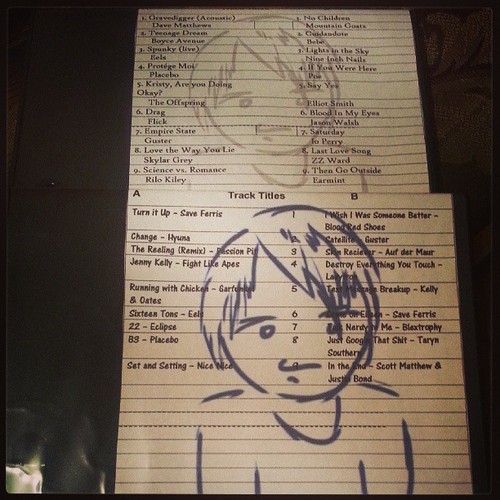 1. Gravedigger (Acoustic)
Dave Matthews
2. Teenage Dream
Boyce Avenue
3. Spunky (live)
Eels
4. Protégé Moi
Placebo
5. Kristy, Are you Doing
Okay?
The Offspring
6. Drag
Flick
7. Empire State
Guster
8. Love the Way You Lie
Skylar Grey
9. Science vs. Romance
Rilo Kiley
1. No Children
Mountain Goats
Bebe
3. Lights in the Sky
Nine Inch Nails
4. If You Were Here
Poe
5. Say Yes
Elliot Smith
6. Blood In My Eyes
Jason Walsh
7. Saturday
Jo Perry
8. Last Love Song
ZZ Ward
9. Then Go Outside
Earmint
A Track Titles B
Turn it Up - Save Ferris 1 I Wish I Was Someone Better -
Blood Red Shoes
Change - Hyuna 2 Satellite - Guster
The Reeling (Remix) - Passion Pit 3 Skin Reciever - Auf der Maur
Jenny Kelly - Fight Like Apes 4 Destroy Everything You Touch -
Running with Chicken - Garfunkel 5 Breakup - Kelly
& Oates
Sixteen Tons - Eels 6 Eileen - Save Ferris
22 - Eclipse 7 Nerdy to Me - Blextrophy
B3 - Placebo 8 Just Google That Shit - Taryn
Southern
Set and Setting - Nice Nice 9 In the End - Scott Matthew &
Justin Bond